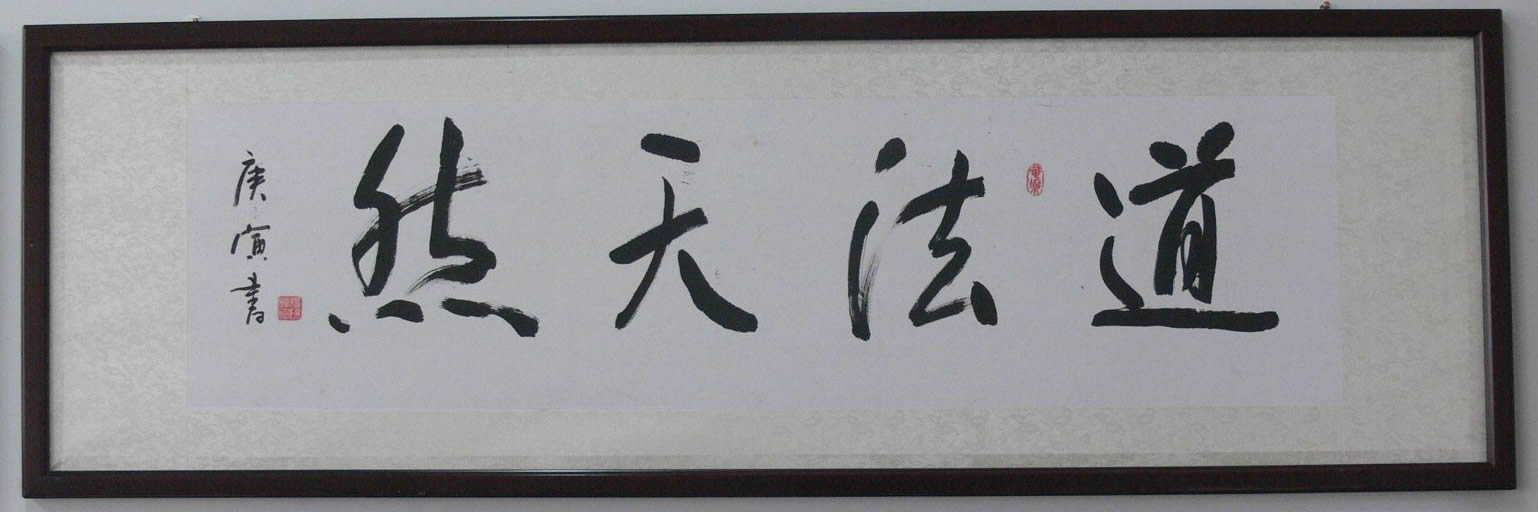 道法天然
庚寅书